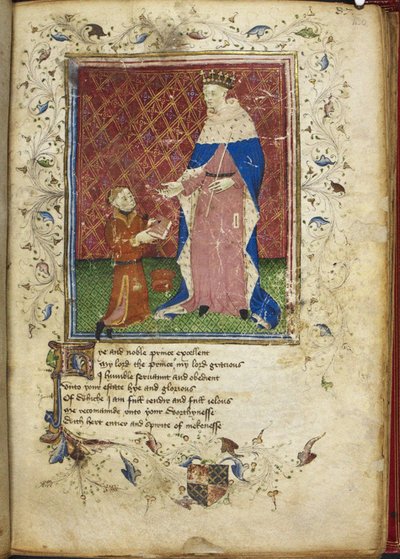 Hye and noble prince excellent
My lord the prince my lord gracious
I humble servaunt and obedient
Unto your estate hye and glorious
Of whiche I am full tendir and full jelous
Me recomaunde unto your worthynesse
With hert entier and spirite of mekenesse